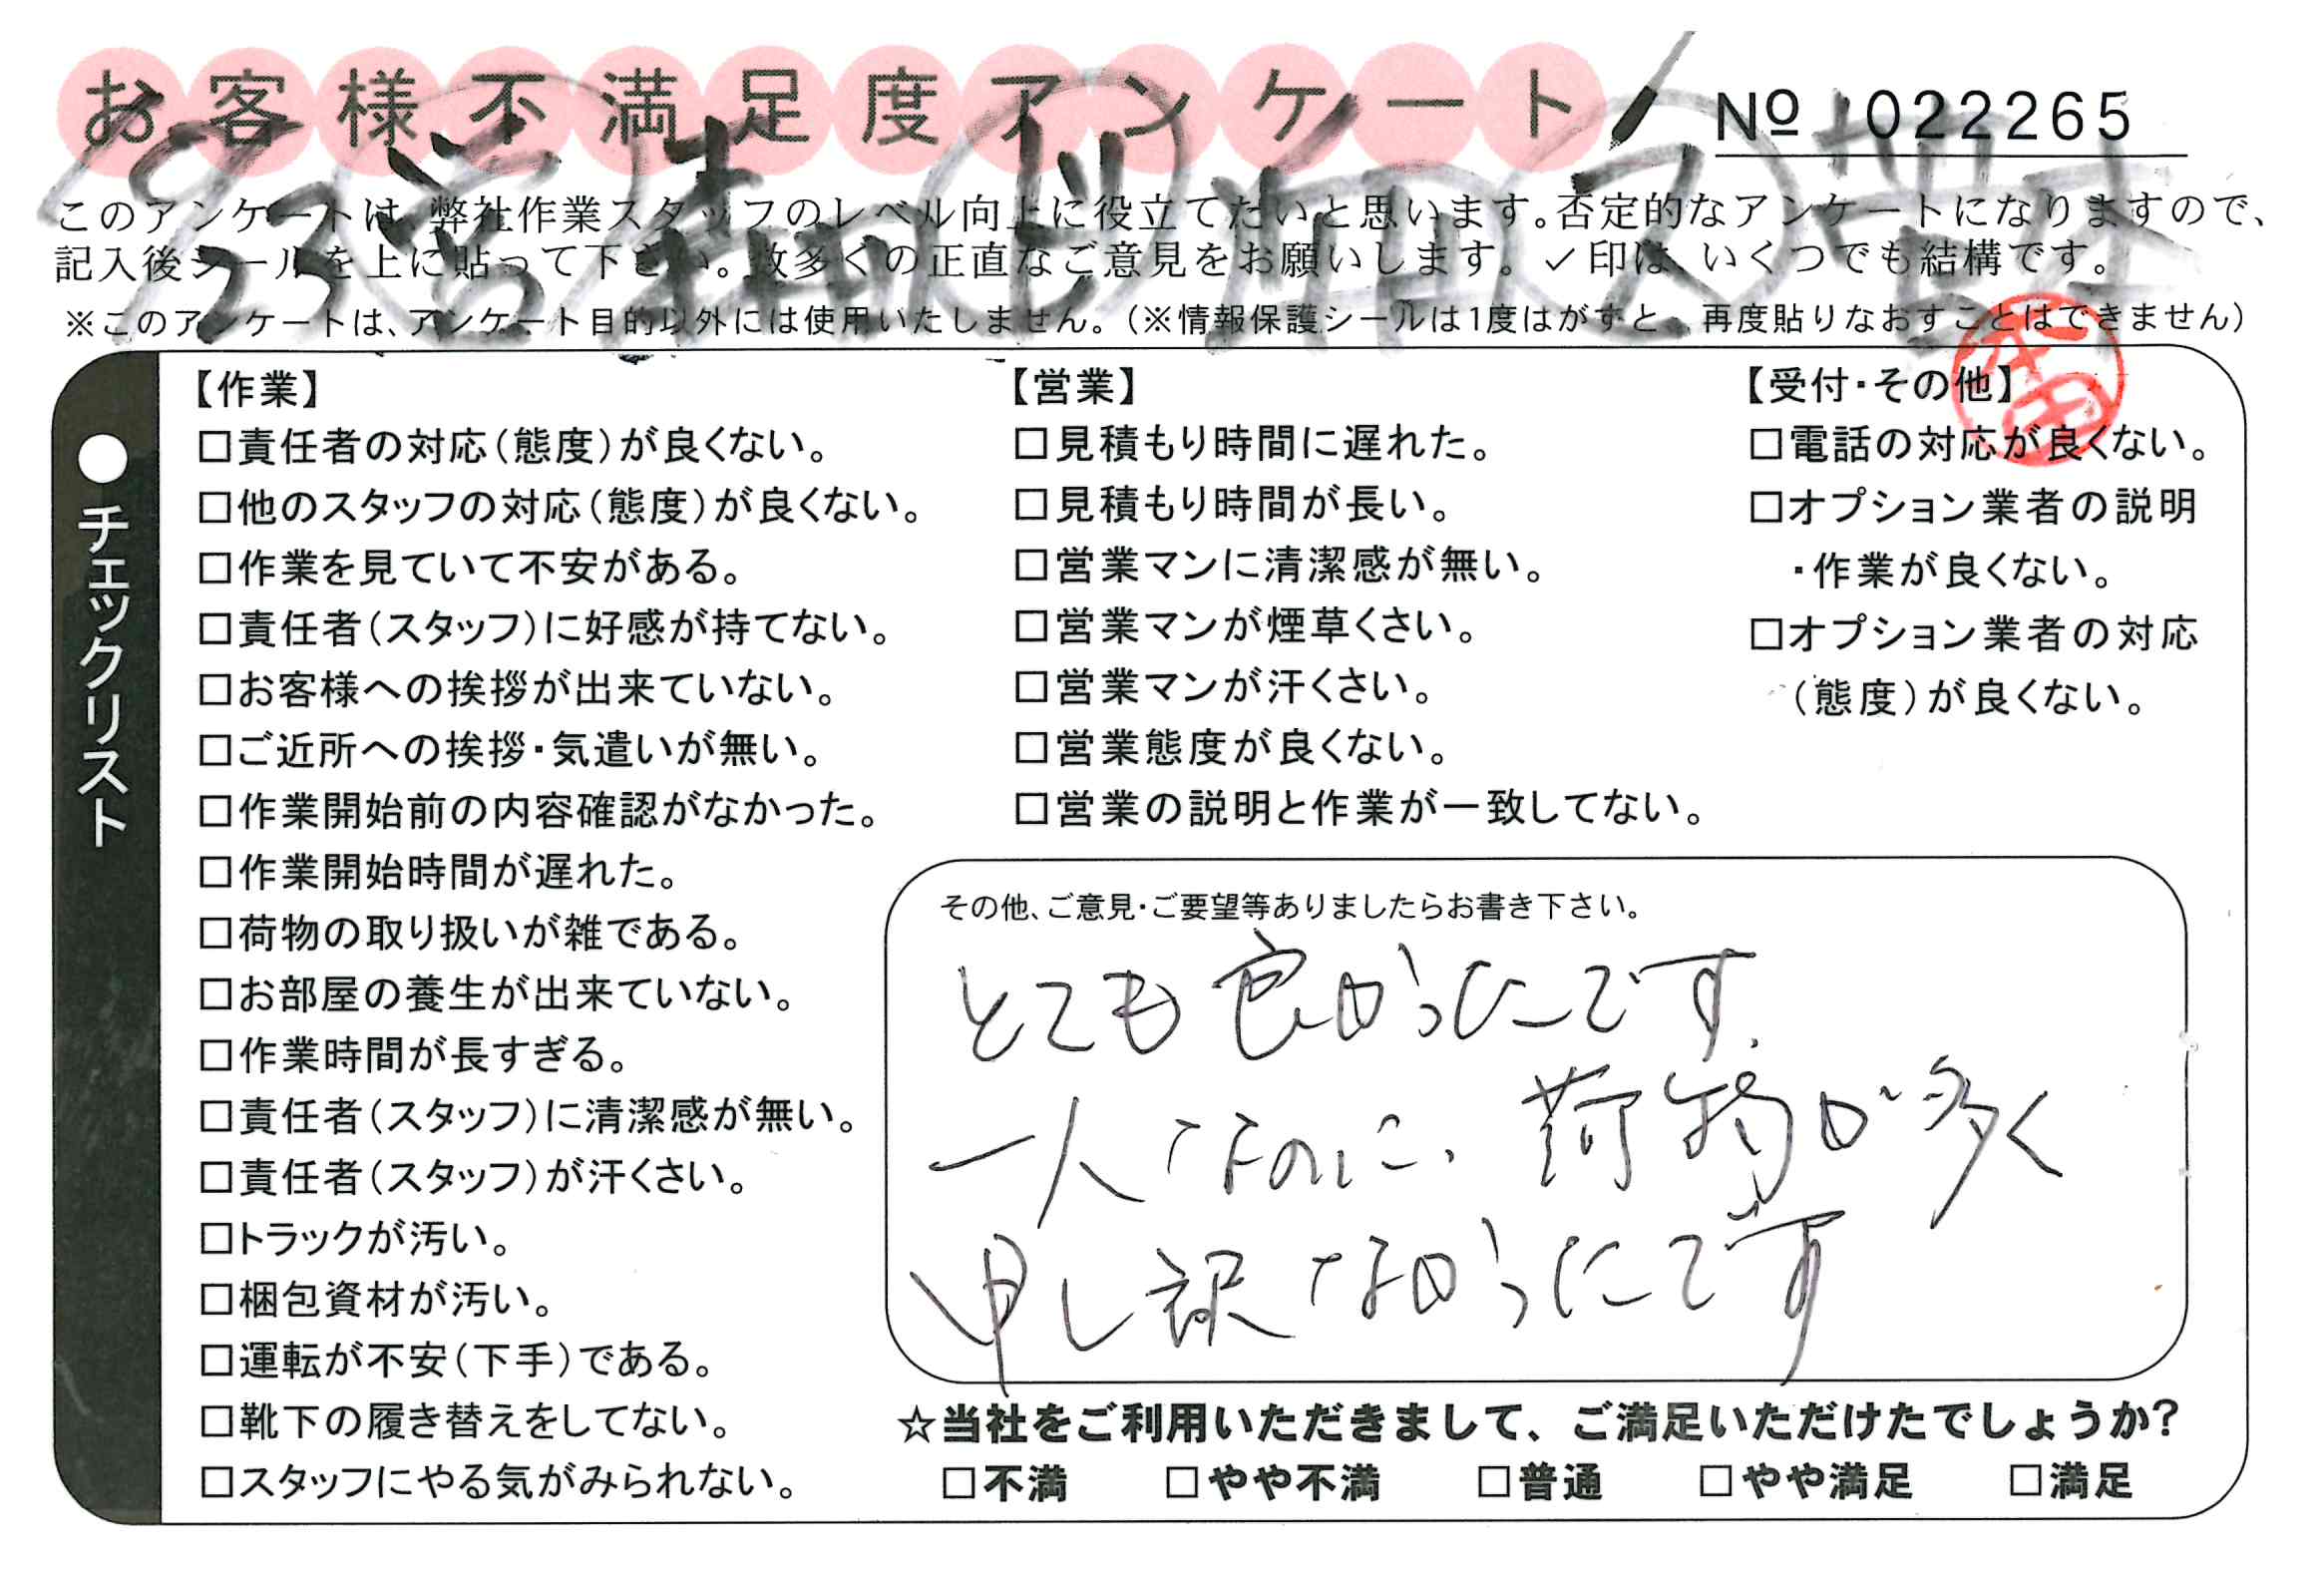 お客様不満足度アンケート
№ 022265
このアンケートは、弊社作業スタッフのレベル向上に役立てたいと思います。否定的なアンケートになりますので、
記入後シールを上に貼って下さい。数多くの正直なご意見をお願いします。✓印は、いくつでも結構です。
※このアンケートは、アンケート目的以外には使用いたしません。(※情報保護シールは1度はがすと、再度貼りなおすことはできません)
●チェックリスト
【作業】
□責任者の対応(態度)が良くない。
□他のスタッフの対応(態度)が良くない。
□作業を見ていて不安がある。
□責任者(スタッフ)に好感が持てない。
□お客様への挨拶が出来ていない。
□ご近所への挨拶・気遣いが無い。
□作業開始前の内容確認がなかった。
□作業開始時間が遅れた。
□荷物の取り扱いが雑である。
□お部屋の養生が出来ていない。
□作業時間が長すぎる。
□責任者(スタッフ)に清潔感が無い。
□責任者(スタッフ)が汗くさい。
□トラックが汚い。
□梱包資材が汚い。
□運転が不安(下手)である。
□靴下の履き替えをしてない。
□スタッフにやる気がみられない。
【営業】
□見積もり時間に遅れた。
□見積もり時間が長い。
□営業マンに清潔感が無い。
□営業マンが煙草くさい。
□営業マンが汗くさい。
□営業態度が良くない。
□営業の説明と作業が一致してない。
【受付・その他】
□電話の対応が良くない。
□オプション業者の説明
・作業が良くない。
□オプション業者の対応
(態度)が良くない。
その他、ご意見・ご要望等ありましたらお書き下さい。
とても良かったです.
一人なのに、荷物が多く
申し訳なかったです
☆当社をご利用いただきまして、ご満足いただけたでしょうか?
□不満 □やや不満 □普通 □やや満足 □満足